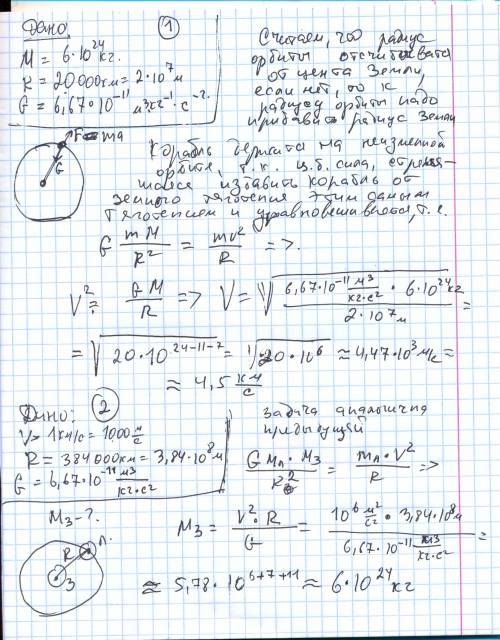 Дано:
①
M = 6·10²⁴ кг.
R = 20000 км = 2·10⁷ м
G = 6,67·10⁻¹¹ м³кг⁻¹·с⁻².
Считаем, что радиус
орбиты отсчитывается
от центра Земли,
если нет, то к
радиусу орбиты надо
прибавить радиус Земли
F = ma
G
Корабль держится на неизменной
орбите, т.к. ц.б. сила, стремя-
щаяся избавить корабль от
земного тяготения этим самым
тяготением и уравновешивается, т.е.
G mM/R² = mv²/R =>.
V² = GM/R => V = √(6,67·10⁻¹¹ м³/кг·с² · 6·10²⁴ кг / 2·10⁷ м) =
= √(20·10²⁴⁻¹¹⁻⁷) = √(20·10⁶) ≈ 4,47·10³ м/с =
≈ 4,5 км/с
Дано:
②
V = 1 км/с = 1000 м/с
R = 384000 км = 3,84·10⁸ м
G = 6,67·10⁻¹¹ м³/кг·с²
Mз - ?
Задача аналогична
предыдущей
G Mл · Mз / R² = mл · V² / R =>
R
Л.
З
Mз = V²·R / G = 10⁶ м²/с² · 3,84·10⁸ м / 6,67·10⁻¹¹ м³/кг·с² =
≈ 5,78·10⁶⁺⁷⁺¹¹ ≈ 6·10²⁴ кг